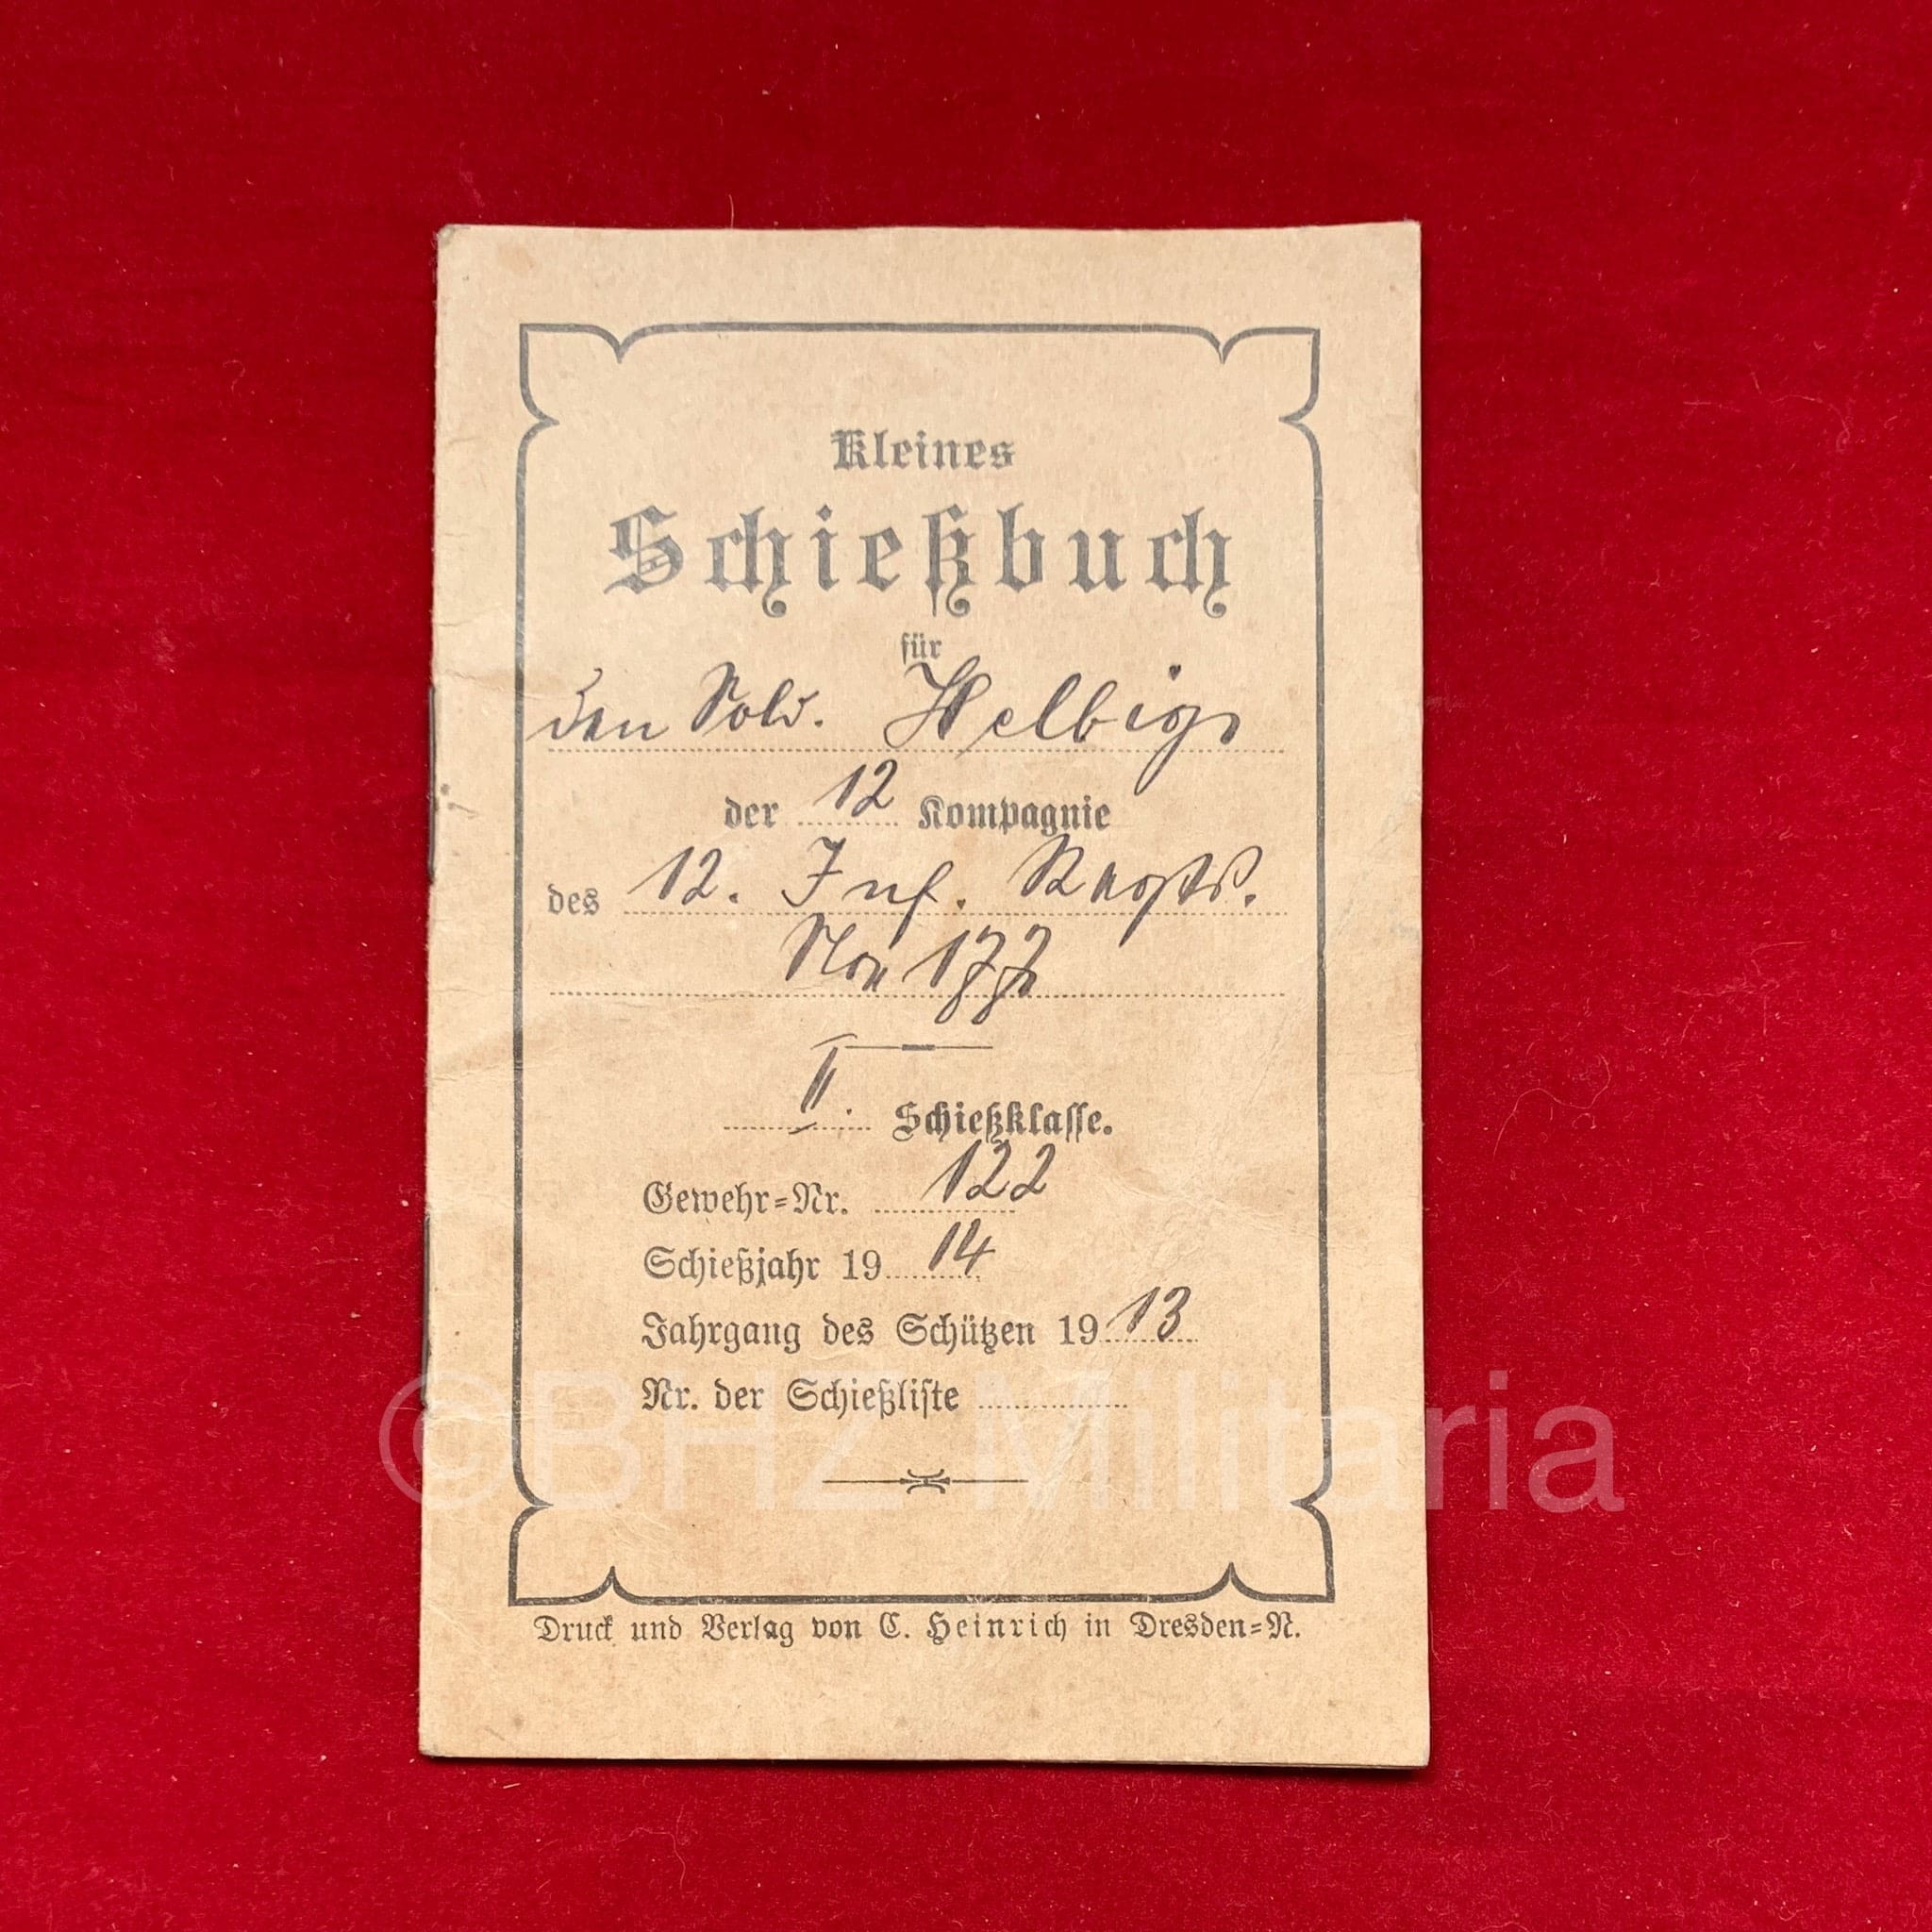 Kleines
Schießbuch
für
den Sold. Helbig
der 12 Kompagnie
des 12. Inf. Regts.
No. 177
II. Schießklasse.
Gewehr=Nr. 122
Schießjahr 1914
Jahrgang des Schützen 1913
Nr. der Schießliste
©BHZ Militaria
Druck und Verlag von C. Heinrich in Dresden=N.